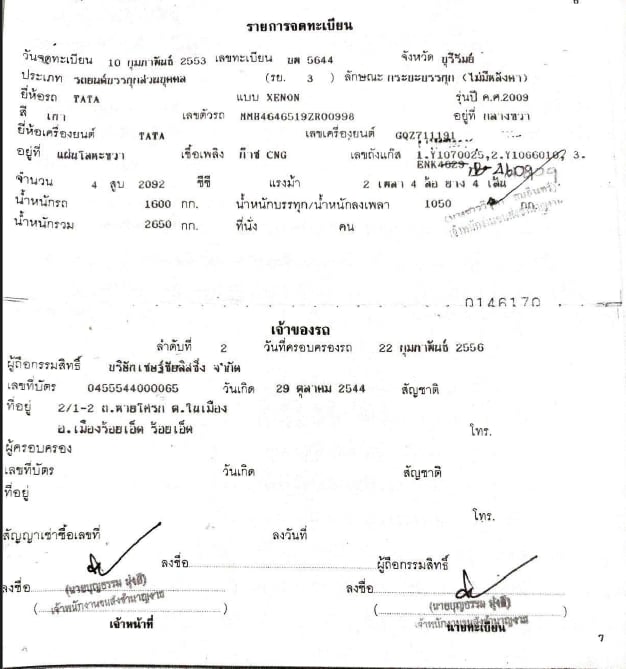 6
รายการจดทะเบียน
วันจดทะเบียน 10 กุมภาพันธ์ 2553 เลขทะเบียน บต 5644 จังหวัด บุรีรัมย์
ประเภท รถยนต์บรรทุกส่วนบุคคล (รย. 3 ) ลักษณะ กระบะบรรทุก (ไม่มีหลังคา)
ยี่ห้อรถ TATA แบบ XENON รุ่นปี ค.ศ.2009
สี เทา เลขตัวรถ MMH4646519ZR00998 อยู่ที่ กลางขวา
ยี่ห้อเครื่องยนต์ TATA เลขเครื่องยนต์ GQZ711191
อยู่ที่ แผ่นโลหะขวา เชื้อเพลิง ก๊าซ CNG เลขถังแก๊ส 1.Y1070025,2.Y1066016, 3.
จำนวน 4 สูบ 2092 ซีซี แรงม้า 2 เพลา 4 ล้อ ยาง 4 เส้น
น้ำหนักรถ 1600 กก. น้ำหนักบรรทุก/น้ำหนักลงเพลา 1050 กก.
น้ำหนักรวม 2650 กก. ที่นั่ง คน
เจ้าพนักงานขนส่งชำนาญงาน
0146170
เจ้าของรถ
ลำดับที่ 2 วันที่ครอบครองรถ 22 กุมภาพันธ์ 2556
ผู้ถือกรรมสิทธิ์ บริษัทเชษฐ์ชัยลิสซิ่ง จำกัด
เลขที่บัตร 0455544000065 วันเกิด 29 ตุลาคม 2544 สัญชาติ
ที่อยู่ 2/1-2 ถ.หายโศรก ต.ในเมือง
อ.เมืองร้อยเอ็ด ร้อยเอ็ด โทร.
ผู้ครอบครอง
เลขที่บัตร วันเกิด สัญชาติ
ที่อยู่
โทร.
สัญญาเช่าซื้อเลขที่ ลงวันที่
ลงชื่อ ผู้ถือกรรมสิทธิ์
ลงชื่อ ลงชื่อ
(นายบุญธรรม มุ่งดี) (นายบุญธรรม มุ่งดี)
เจ้าพนักงานขนส่งชำนาญงาน เจ้าพนักงานขนส่งชำนาญงาน
เจ้าหน้าที่ นายทะเบียน
7